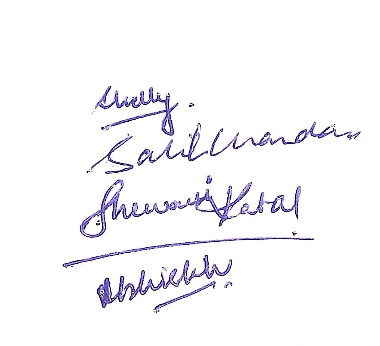 Shelly.
Sahil Chanda..
Shewani Katal
Abhishekh